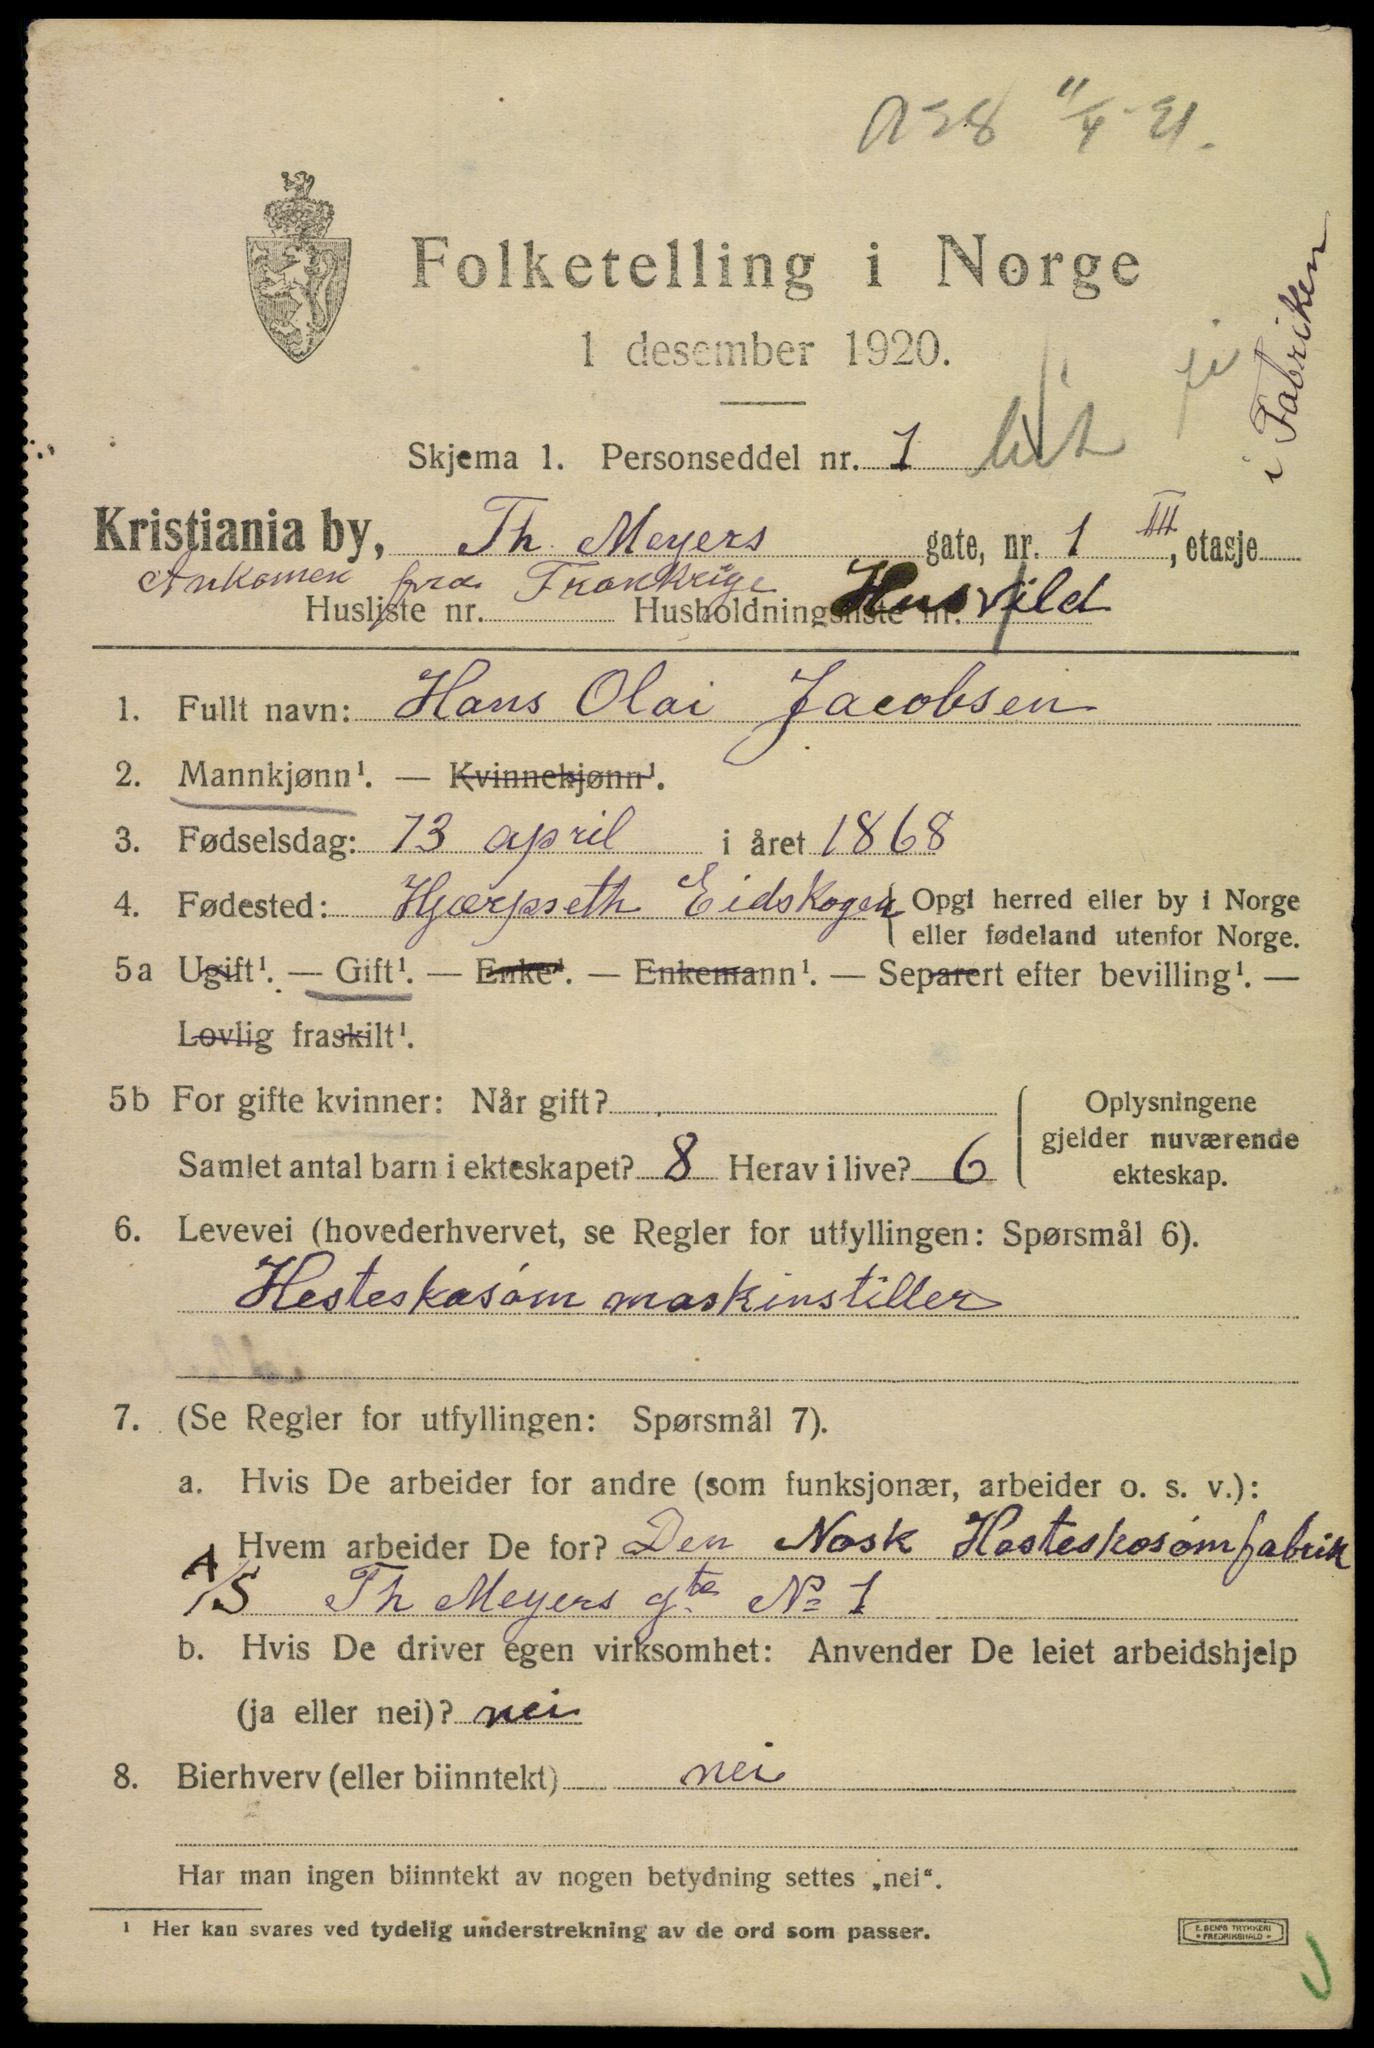 Folketelling i Norge
1 desember 1920.
Skjema 1. Personseddel nr. 1
i Fabriken
Kristiania by, Th. Meyers gate, nr. 1 III, etasje
Ankomen fra Frankrige
Husliste nr. Husholdningsliste nr. Husvild
1. Fullt navn: Hans Olai Jacobsen
2. Mannkjønn¹. — Kvinnekjønn¹.
3. Fødselsdag: 13 april i året 1868
4. Fødested: Hjærpseth Eidskogen Opgi herred eller by i Norge
eller fødeland utenfor Norge.
5a Ugift¹. — Gift¹. — Enke¹. — Enkemann¹. — Separert efter bevilling¹. —
Lovlig fraskilt¹.
5b For gifte kvinner: Når gift?
Samlet antal barn i ekteskapet? 8 Herav i live? 6
Oplysningene
gjelder nuværende
ekteskap.
6. Levevei (hovederhvervet, se Regler for utfyllingen: Spørsmål 6).
Hesteskosøm maskinstiller
7. (Se Regler for utfyllingen: Spørsmål 7).
a. Hvis De arbeider for andre (som funksjonær, arbeider o. s. v.):
Hvem arbeider De for? Den Nosk Hesteskosømfabrik
A/S Th Meyers gte No 1
b. Hvis De driver egen virksomhet: Anvender De leiet arbeidshjelp
(ja eller nei)? nei
8. Bierhverv (eller biinntekt) nei
Har man ingen biinntekt av nogen betydning settes „nei“.
¹ Her kan svares ved tydelig understrekning av de ord som passer.
E. SEM'S TRYKKERI
FREDRIKSHALD